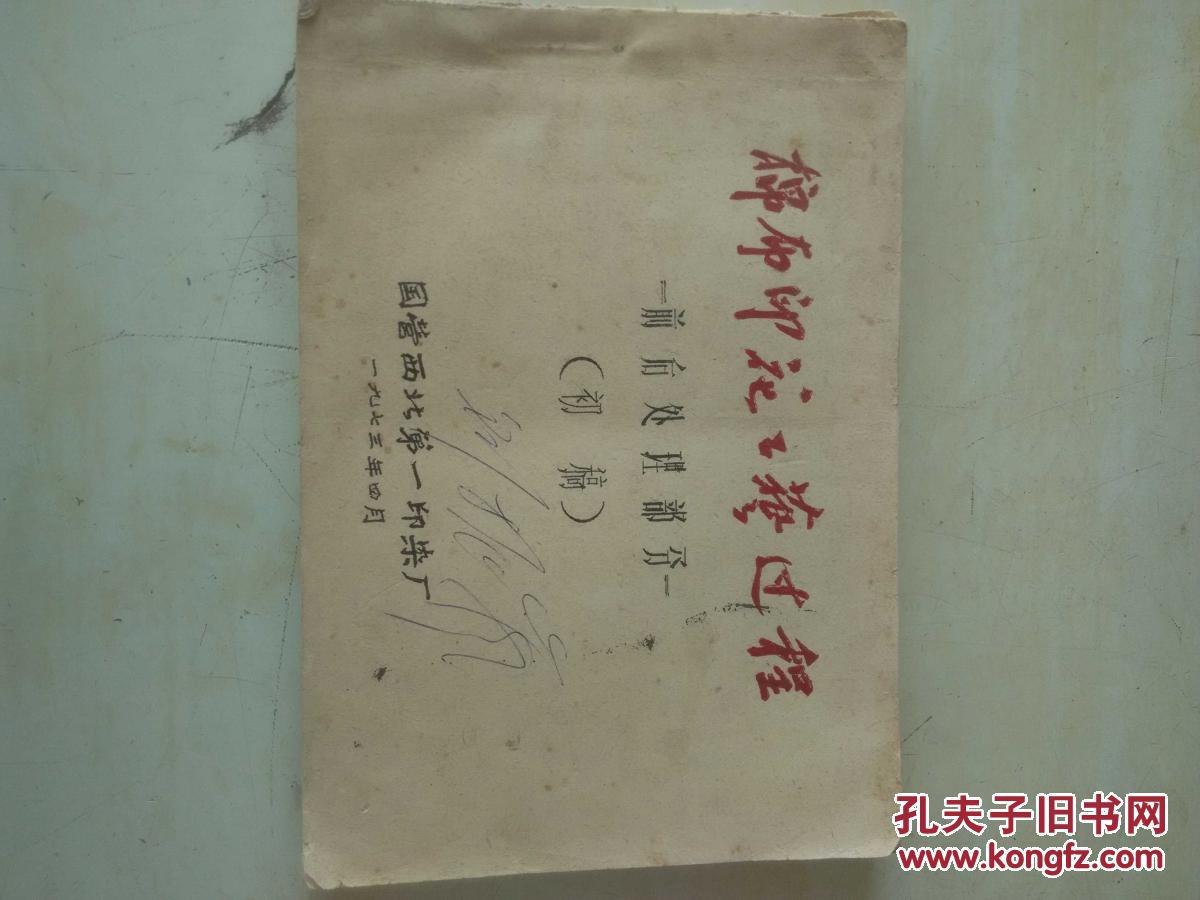 棉布印花工艺过程
—前后处理部分—
（初稿）
国营西北第一印染厂
一九七三年四月
孔夫子旧书网
www.kongfz.com